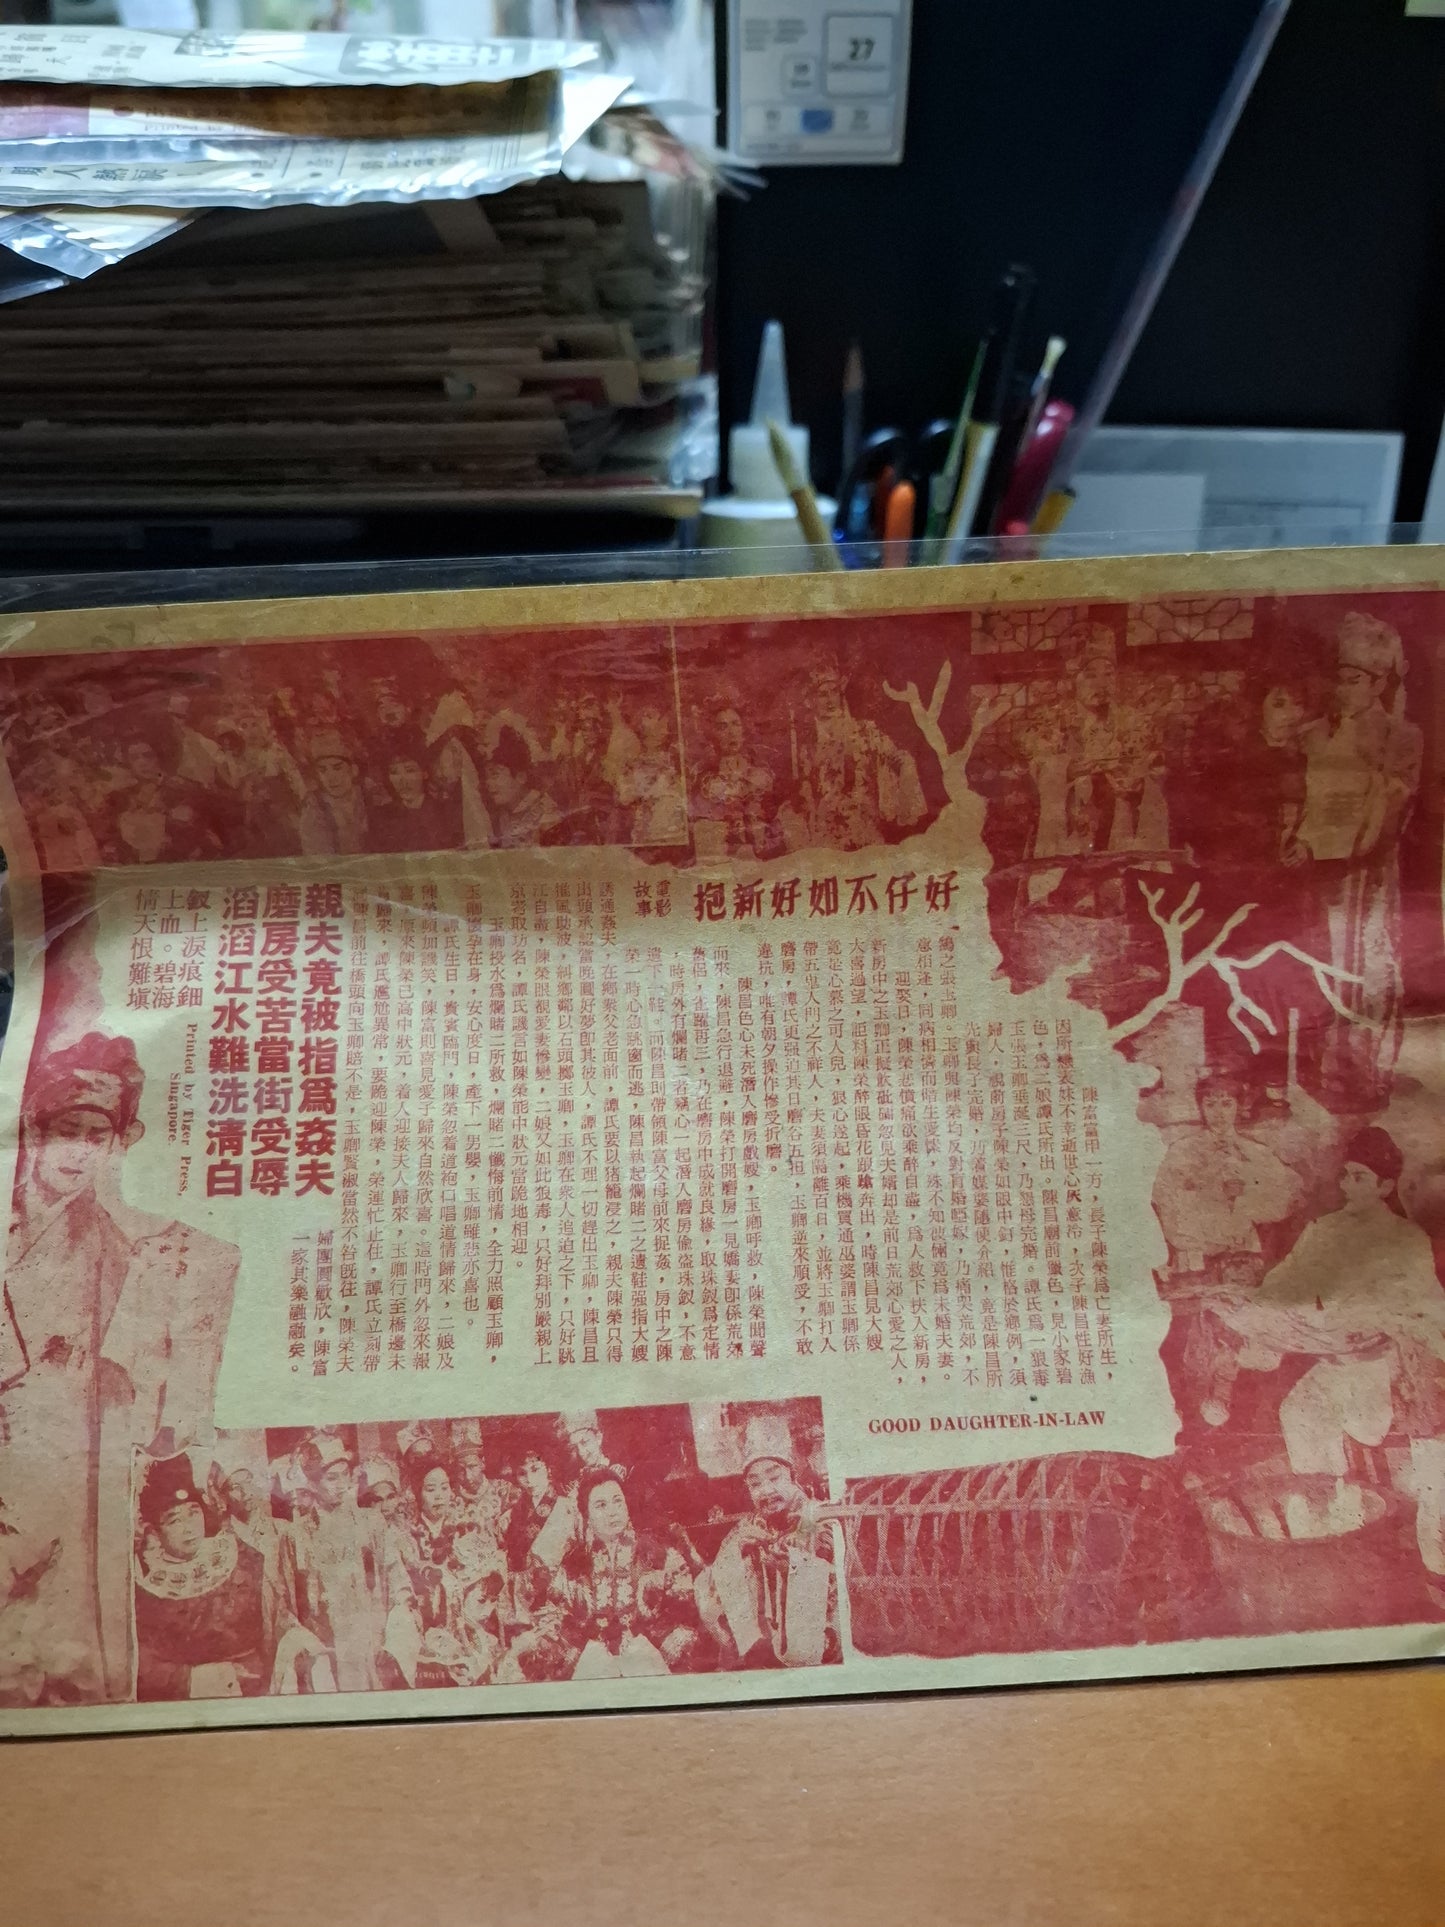 27
好仔不如好新抱
電影
故事
陳富富甲一方，長子陳榮爲亡妻所生，
因所戀表妹不幸逝世心灰意冷，次子陳昌性好漁
色，爲二娘譚氏所出。陳昌廟前獵色，見小家碧
玉張玉卿垂涎三尺，乃懇母完婚。譚氏爲一狠毒
婦人，視前房子陳榮如眼中釘，惟格於鄉例，須
先與長子完婚，乃着媒婆隨便介紹，竟是陳昌所
鵠之張玉卿。玉卿與陳榮均反對盲婚啞嫁，乃痛哭荒郊，不
意相逢，同病相憐而暗生愛慕，殊不知彼倆竟爲未婚夫妻。
迎娶日，陳榮悲憤痛欲乘醉自盡，爲人救下扶入新房，
新房中之玉卿正擬飲砒霜忽見夫婿却是前日荒郊心愛之人，
大喜過望，詎料陳榮醉眼昏花踉蹌奔出，時陳昌見大嫂
竟是心慕之可人兒，狠心遂起，乘機買通巫婆謂玉卿係
帶五鬼入門之不祥人，夫妻須隔離百日，並將玉卿打入
磨房，譚氏更强迫其日磨谷五担，玉卿逆來順受，不敢
違抗，唯有朝夕操作慘受折磨。
陳昌色心未死潛入磨房戲嫂，玉卿呼救，陳榮聞聲
而來，陳昌急行退避，陳榮打開磨房一見嬌妻卽係荒郊
舊侶，雀躍再三，乃在磨房中成就良緣，取珠釵爲定情
，時房外有爛賭二者竊心一起潛入磨房偷盜珠釵，不意
遺下一鞋。而陳昌則帶領陳富父母前來捉姦，房中之陳
榮一時心急跳窗而逃，陳昌執起爛賭二之遺鞋强指大嫂
誘通姦夫，在鄉衆父老面前，譚氏要以猪籠浸之，親夫陳榮只得
出頭承認當晚圓好夢卽其彼人，譚氏不理一切趕出玉卿，陳昌且
推風助波，糾鄉鄰以石頭擲玉卿，玉卿在衆人追迫之下，只好跳
江自盡，陳榮眼覩愛妻慘變，二娘又如此狠毒，只好拜別嚴親上
京考取功名，譚氏譏言如陳榮能中狀元當跪地相迎。
玉卿投水爲爛賭二所救，爛賭二懺悔前情，全力照顧玉卿，
玉卿懷孕在身，安心度日，產下一男嬰，玉卿雖悲亦喜也。
譚氏生日，賓賓臨門，陳榮忽着道袍口唱道情歸來，二娘及
陳昌頻加譏笑，陳富則喜見愛子歸來自然欣喜。這時門外忽來報
喜，原來陳榮已高中狀元，着人迎接夫人歸來，玉卿行至橋邊未
肯歸來，譚氏尷尬異常，要跪迎陳榮，榮連忙止住，譚氏立刻帶
同陳昌前往橋頭向玉卿賠不是，玉卿賢淑當然不咎旣往，陳榮夫
婦團圓歡欣，陳富
一家其樂融融矣。
親夫竟被指爲姦夫
磨房受苦當街受辱
滔滔江水難洗淸白
釵上淚痕鈿
上血。碧海
情天恨難塡
Printed by Tiger Press,
Singapore.
GOOD DAUGHTER-IN-LAW